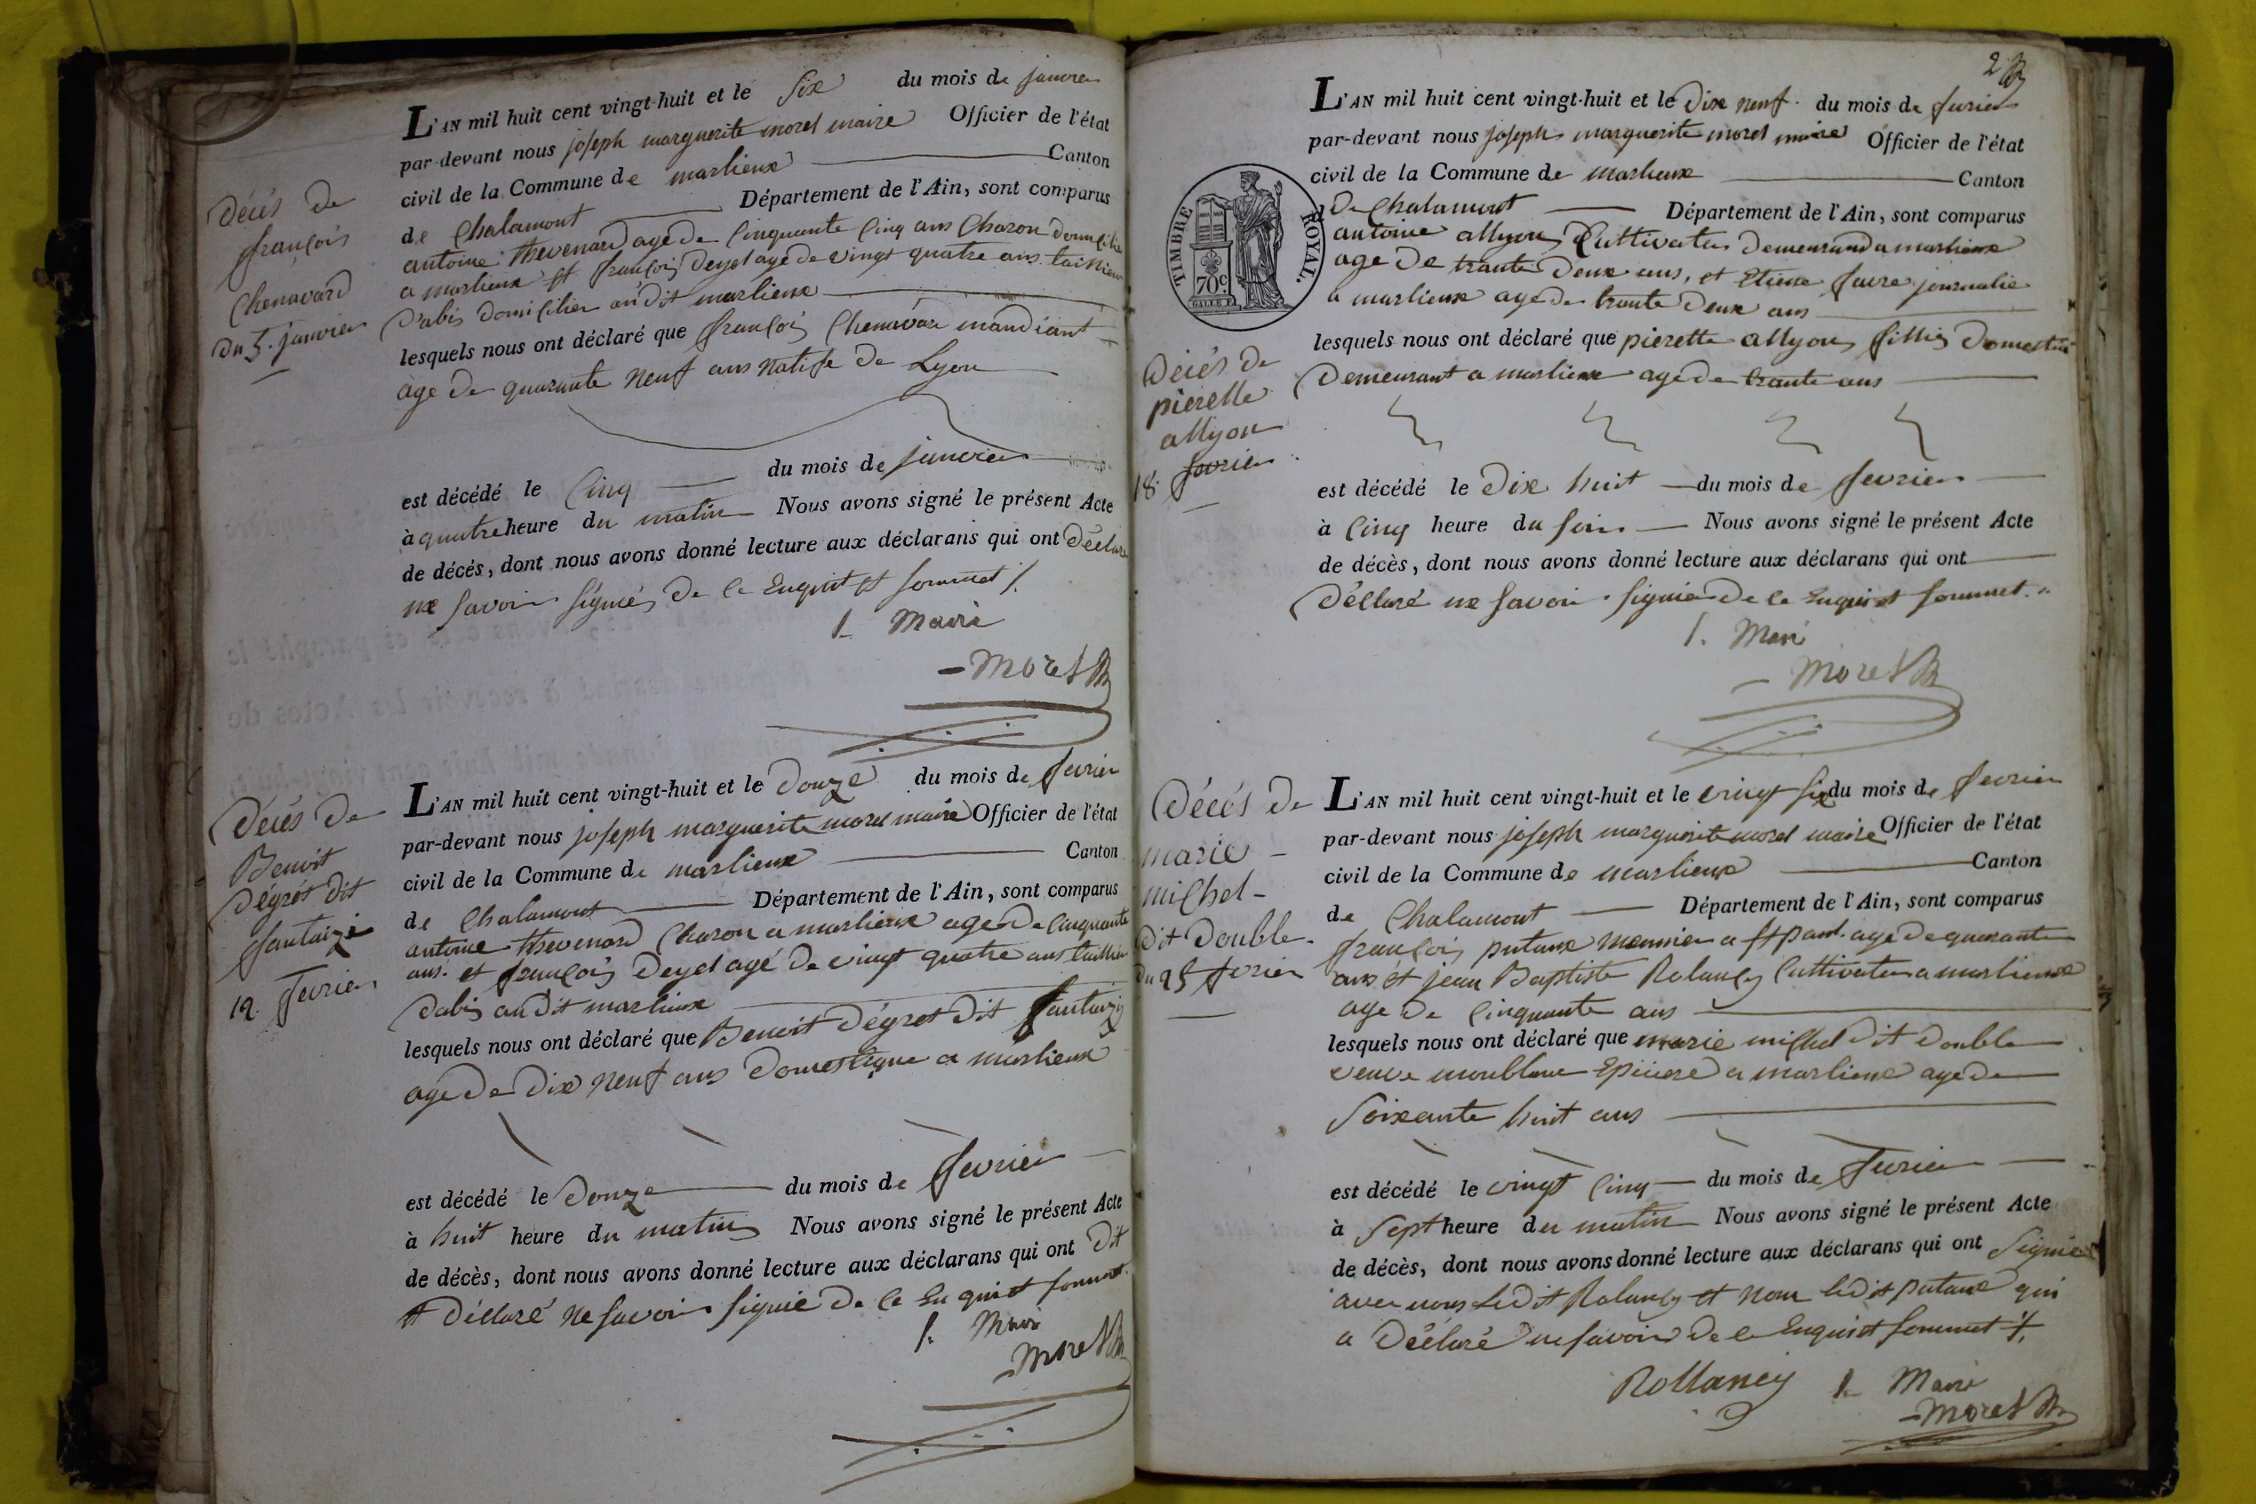 Décés de
françois
Chenavard
du 5. janvier
L'AN mil huit cent vingt-huit et le Six du mois de janvier
par-devant nous joseph marguerite morel maire Officier de l'état
civil de la Commune de marlieux Canton
de Chalamont Département de l'Ain, sont comparus
antoine thevenard agé de Cinquante Cinq ans Charon domicilié
a marlieux et françois Deyel agé de vingt quatre ans taillieur
d'abis domicilier audit marlieux
lesquels nous ont déclaré que françois Chenavar mandiant
agé de quarante neuf ans natife de Lyon
est décédé le Cinq du mois de janvier
à quatre heure du matin Nous avons signé le présent Acte
de décés, dont nous avons donné lecture aux déclarans qui ont déclaré
ne Savoir Signiés de Ce Enquist et Sommet
le Maire
Morel
Décés de
Benoit
Dégrét dit
fantaizi
12. fevrier
L'AN mil huit cent vingt-huit et le Douze du mois de fevrier
par-devant nous joseph marguerite morel maire Officier de l'état
civil de la Commune de marlieux Canton
de Chalamont Département de l'Ain, sont comparus
antoine thevenard Charon a marlieux agé de Cinquante
ans. et françois Deyel agé de vingt quatre ans taillieur
dabis audit marlieux
lesquels nous ont déclaré que Benoit Dégret dit fantaizi
agé de Dix neuf ans Domestique a marlieux
est décédé le Douze du mois de fevrier
à huit heure du matin Nous avons signé le présent Acte
de décès, dont nous avons donné lecture aux déclarans qui ont dit
et Déclaré ne Savoir Signié de Ce Enquist Sommet
le Maire
Morel
2
TIMBRE ROYAL.
70c
L'AN mil huit cent vingt-huit et le Dix neuf du mois de fevrier
par-devant nous joseph marguerite morel maire Officier de l'état
civil de la Commune de marlieux Canton
de Chalamont Département de l'Ain, sont comparus
antoine allyon Cultivateur demeurand a marlieux
agé de trante deux ans, et Etiene favre journalié
a marlieux agé de trante deux ans
lesquels nous ont déclaré que pierette allyon fillie domestique
demeurant a marlieux agé de trante ans
Décés de
pierette
allyon
18. fevrier
est décédé le dix huit du mois de fevrier
à Cinq heure du Soir Nous avons signé le présent Acte
de décès, dont nous avons donné lecture aux déclarans qui ont
Déclaré ne Savoir Signier de Ce Enquist Sommet
le Maire
Morel
Décés de
marie
michel
dit Double
du 25 fevrier
L'AN mil huit cent vingt-huit et le vingt Six du mois de fevrier
par-devant nous joseph marguerite morel maire Officier de l'état
civil de la Commune de marlieux Canton
de Chalamont Département de l'Ain, sont comparus
françois putaux meunier a St paul agé de quarante
ans et jean Baptiste Rolancy Cultivateur a marlieux
agé de Cinquante ans
lesquels nous ont déclaré que marie michel dit Double
veuve monblanc Epiciere a marlieux agé de
Soixante huit ans
est décédé le vingt Cinq du mois de fevrier
à Sept heure du matin Nous avons signé le présent Acte
de décès, dont nous avons donné lecture aux déclarans qui ont Signié
avec nous Ledit Rolancy et non ledit putaux qui
a Déclaré ne Savoir de Ce Enquist Sommet
Rollancy le Maire
Morel